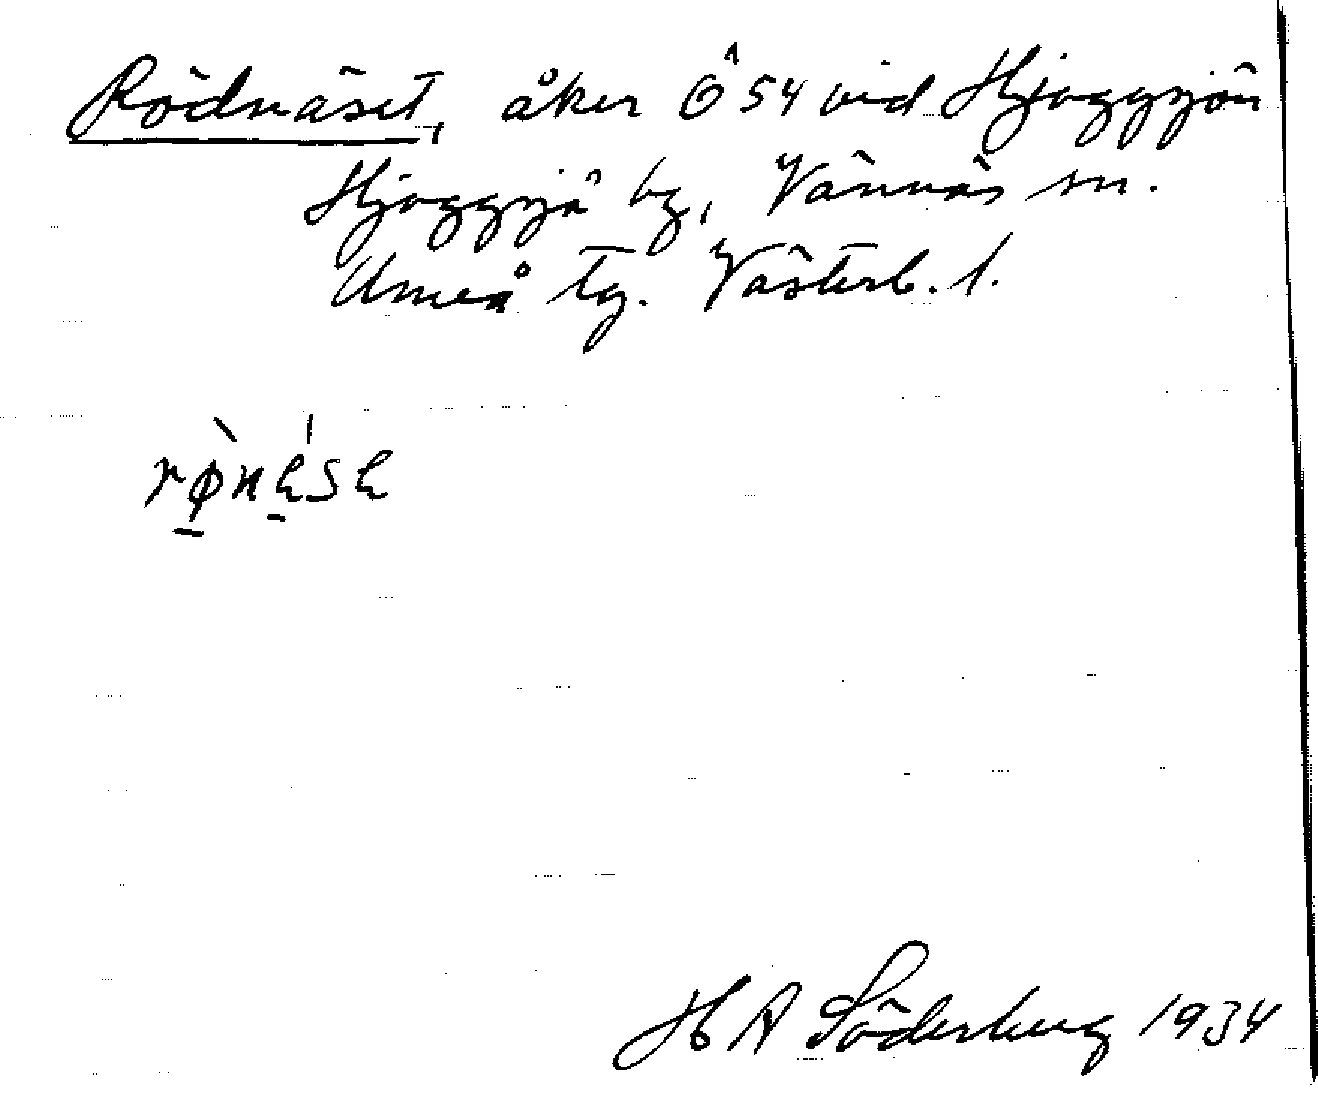 Rödnäset, åker Ö 54 vid Hjoggsjön
Hjoggsjö by, Vännäs sn.
Umeå tg. Västerb. l.
rø̀nǽsæ
H A Söderberg 1934